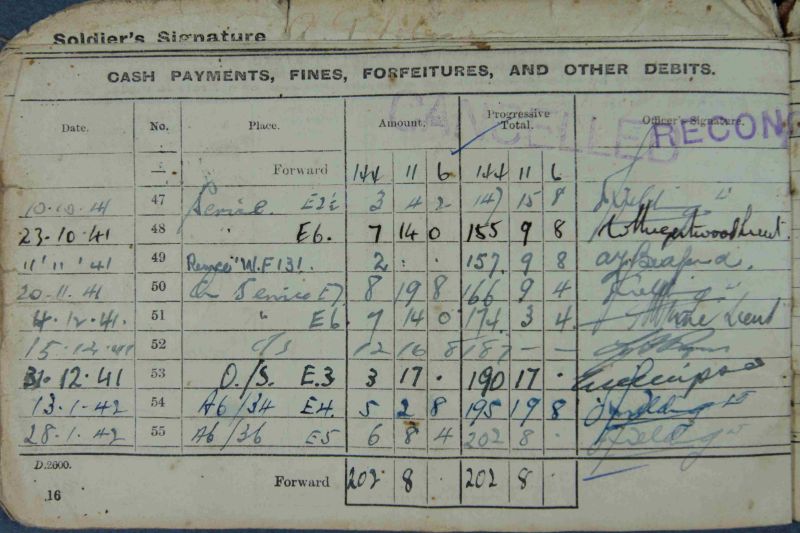 Soldier's Signature
CASH PAYMENTS, FINES, FORFEITURES, AND OTHER DEBITS.
CANCELLED RECON
Date. No. Place. Amount. Progressive Total. Officer's Signature.
— Forward 144 11 6 144 11 6
10.10.41 47 Service 3 4 2 147 15 8
23.10.41 48 " E6. 7 14 0 155 9 8 Lieut.
11'11'41 49 W.F 131. 2 . . 157 9 8
20.11.41 50 On Service E7 8 19 8 166 9 4
4.12.41. 51 " E6 7 14 0 174 3 4 Lieut
15.12.41 52 O/S 12 16 8 187 — —
31.12.41 53 O./S. E.3 3 17 . 190 17 .
13.1.42 54 A6/34 E4. 5 2 8 195 19 8
28.1.42 55 A6/36 E5 6 8 4 202 8 .
D.2600.
Forward 202 8 . 202 8 .
16